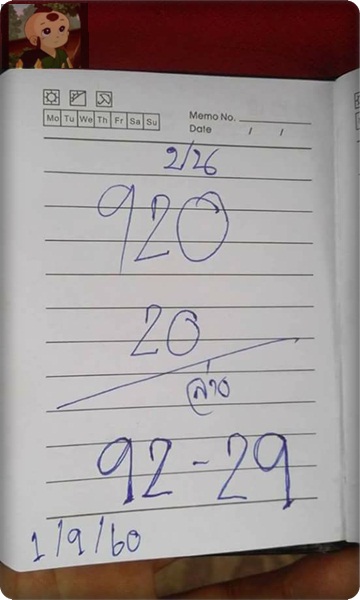 Mo Tu We Th Fr Sa Su
Memo No.
Date / /
2/26
920
20
ล่าง
92-29
1/9/60